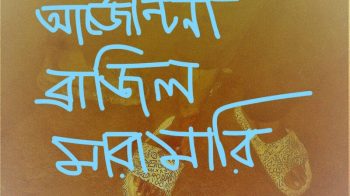 আর্জেন্টিনা
ব্রাজিল
মারামারি